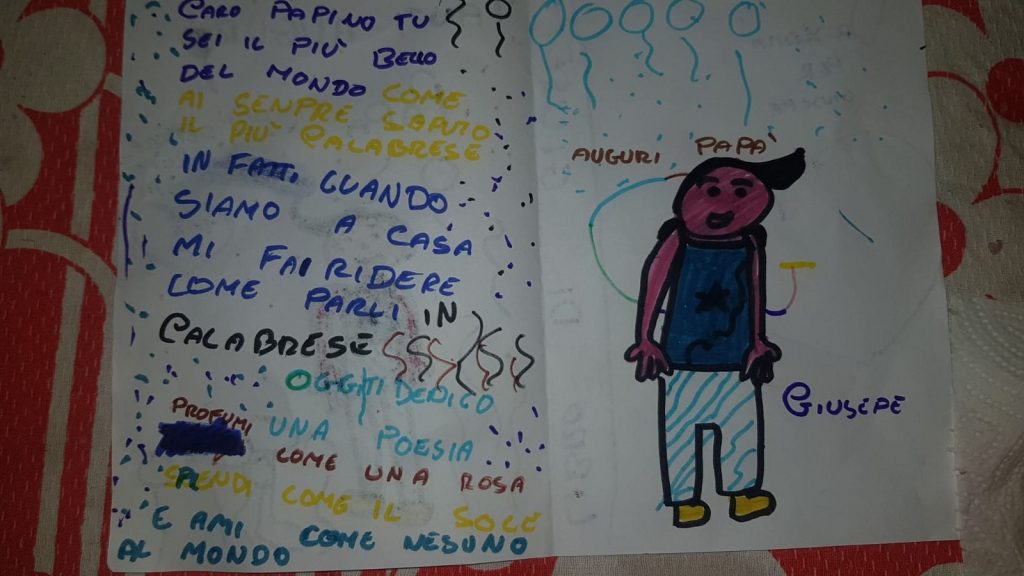 CARO PAPINO TU
SEI IL PIÙ BELLO
DEL MONDO COME
AI SENPRE SAPUTO
IL PIÙ CALABRESE
IN FATTI CUANDO
SIAMO A CASA
MI FAI RIDERE
COME PARLI IN
CALABRESE
OGGI TI DEDICO
PROFUMI UNA POESIA
COME UNA ROSA
SPLENDI COME IL SOLE
E AMI COME NESUNO
AL MONDO
AUGURI PAPÀ
GIUSEPE